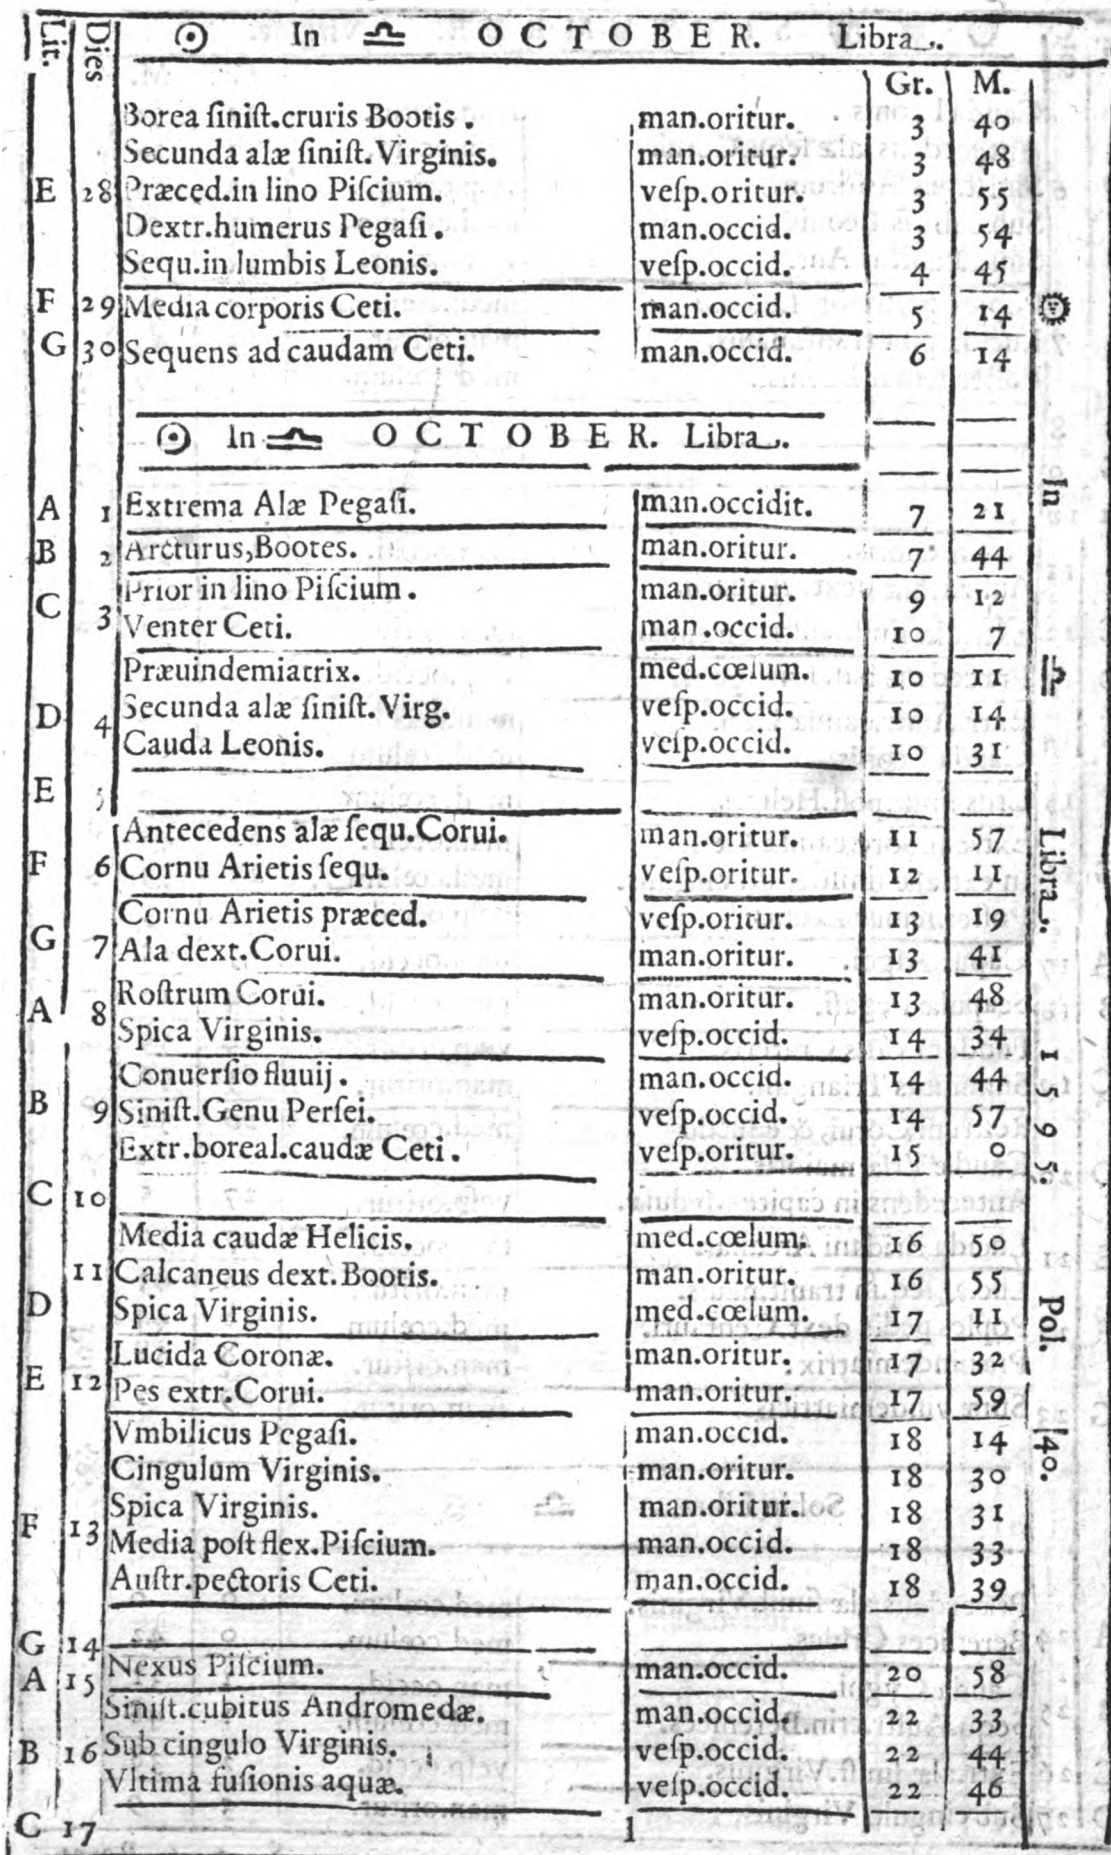 Lit. Dies ☉ In ♎ OCTOBER. Libra.
Gr. M.
Borea ſiniſt.cruris Bootis. man.oritur. 3 40
Secunda alæ ſiniſt.Virginis. man.oritur. 3 48
E 28 Præced.in lino Piſcium. veſp.oritur. 3 55
Dextr.humerus Pegaſi. man.occid. 3 54
Sequ.in lumbis Leonis. veſp.occid. 4 45
F 29 Media corporis Ceti. man.occid. 5 14
G 30 Sequens ad caudam Ceti. man.occid. 6 14
☉ In ♎ OCTOBER. Libra.
A 1 Extrema Alæ Pegaſi. man.occidit. 7 21
B 2 Arcturus,Bootes. man.oritur. 7 44
Prior in lino Piſcium. man.oritur. 9 12
C 3 Venter Ceti. man.occid. 10 7
Præuindemiatrix. med.cœlum. 10 11
D 4 Secunda alæ ſiniſt.Virg. veſp.occid. 10 14
Cauda Leonis. veſp.occid. 10 31
E 5
Antecedens alæ ſequ.Corui. man.oritur. 11 57
F 6 Cornu Arietis ſequ. veſp.oritur. 12 11
Cornu Arietis præced. veſp.oritur. 13 19
G 7 Ala dext.Corui. man.oritur. 13 41
A 8 Roſtrum Corui. man.oritur. 13 48
Spica Virginis. veſp.occid. 14 34
Conuerſio fluuij. man.occid. 14 44
B 9 Siniſt.Genu Perſei. veſp.occid. 14 57
Extr.boreal.caudæ Ceti. veſp.oritur. 15 0
C 10
Media caudæ Helicis. med.cœlum. 16 50
11 Calcaneus dext.Bootis. man.oritur. 16 55
D Spica Virginis. med.cœlum. 17 11
Lucida Coronæ. man.oritur. 17 32
E 12 Pes extr.Corui. man.oritur. 17 59
Vmbilicus Pegaſi. man.occid. 18 14
Cingulum Virginis. man.oritur. 18 30
Spica Virginis. man.oritur. 18 31
F 13 Media poſt flex.Piſcium. man.occid. 18 33
Auſtr.pectoris Ceti. man.occid. 18 39
G 14
A 15 Nexus Piſcium. man.occid. 20 58
Siniſt.cubitus Andromedæ. man.occid. 22 33
B 16 Sub cingulo Virginis. veſp.occid. 22 44
Vltima fuſionis aquæ. veſp.occid. 22 46
C 17
In ♎ Libra. 1595. Pol. 40.